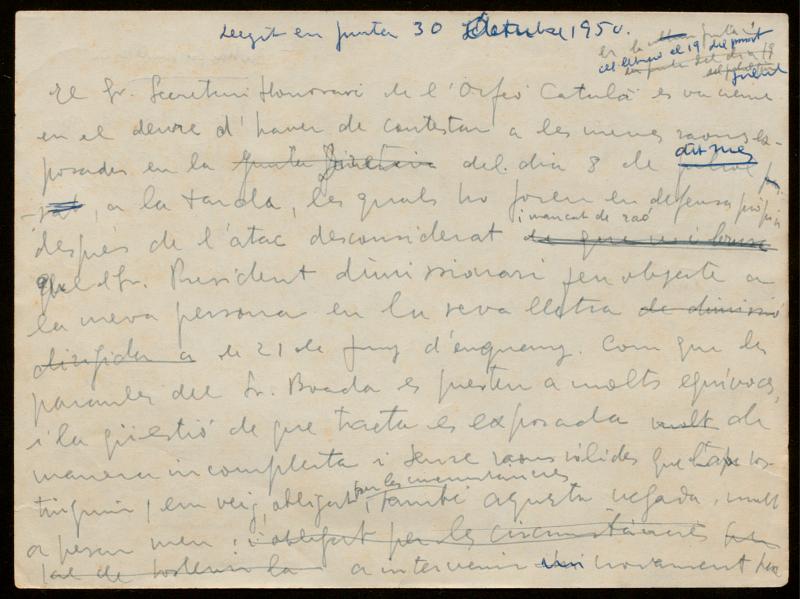 Llegit en junta 30 Octubre 1950.
en la junta
celebrada el 19 del present
en junta del dia 19
del
El Sr. Secretari Honorari de l'Orfeó Català es va creure
en el deure d'haver de contestar a les meves raons ex-
posades en la Junta Directiva del dia 8 de
, a la tarda, les quals ho foren en defensa pròpia
i mancat de raó
després de l'atac desconsiderat de que
que el Sr. President dimissionari feu objecte a
la meva persona en la seva lletra de dimissió
dirigida a de 21 de Juny d'enguany. Com que les
paraules del Sr. Boada es presten a molts equívocs,
i la qüestió de que tracta es exposada molt de
manera incomplerta i sense raons vàlides que
tinguin, em veig obligat, també aquesta vegada, molt
per les circumstàncies
a pesar meu, i obligat per les circumstàncies
de sostenir la a intervenir novament